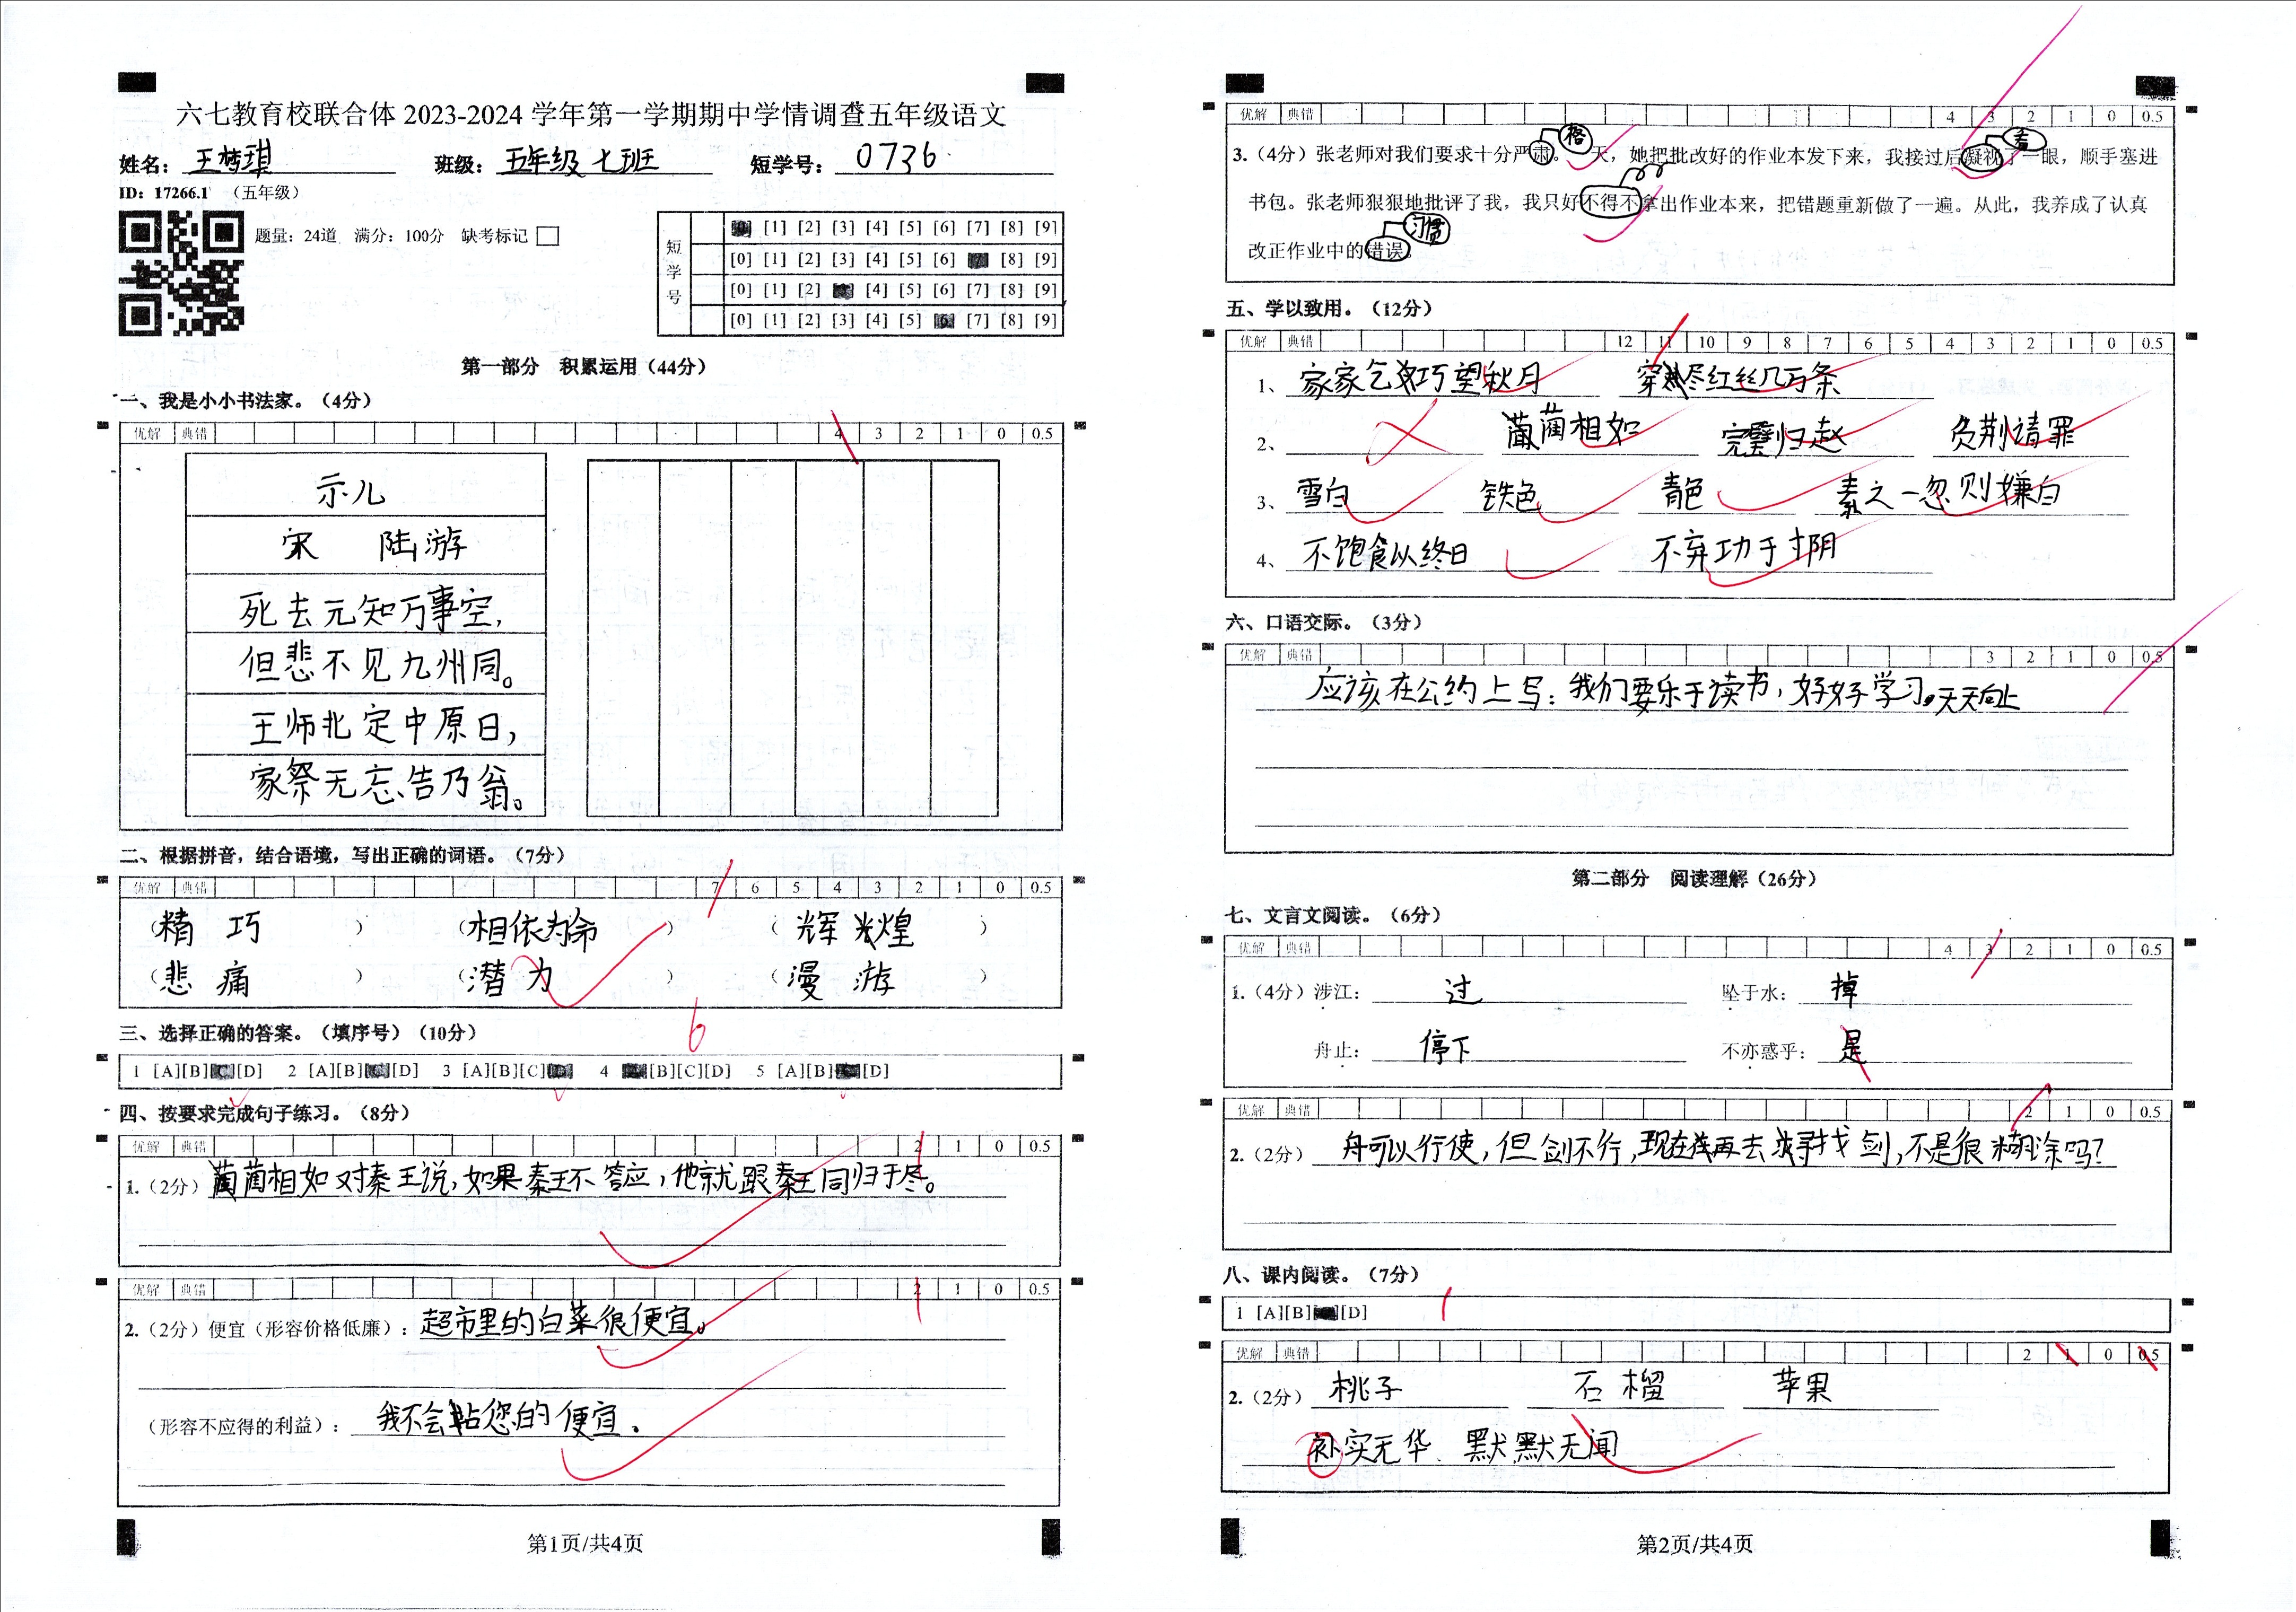 六七教育校联合体 2023-2024 学年第一学期期中学情调查五年级语文
姓名：王梦琪 班级：五年级 七班 短学号：0736
ID：17266.1 （五年级）
题量：24道 满分：100分 缺考标记
短学号
[1] [2] [3] [4] [5] [6] [7] [8] [9]
[0] [1] [2] [3] [4] [5] [6] [8] [9]
[0] [1] [2] [4] [5] [6] [7] [8] [9]
[0] [1] [2] [3] [4] [5] [7] [8] [9]
第一部分 积累运用（44分）
一、我是小小书法家。（4分）
优解 典错 4 3 2 1 0 0.5
示儿
宋 陆游
死去元知万事空，
但悲不见九州同。
王师北定中原日，
家祭无忘告乃翁。
二、根据拼音，结合语境，写出正确的词语。（7分）
优解 典错 7 6 5 4 3 2 1 0 0.5
（精 巧 ） （相依为命 ） （ 辉 煌 ）
（悲 痛 ） （潜 力 ） （ 漫 游 ）
三、选择正确的答案。（填序号）（10分） 6
1 [A][B][C][D] 2 [A][B][C][D] 3 [A][B][C] 4 [B][C][D] 5 [A][B] [D]
四、按要求完成句子练习。（8分）
优解 典错 2 1 0 0.5
1.（2分）蔺相如对秦王说，如果秦王不答应，他就跟秦王同归于尽。
优解 典错 2 1 0 0.5
2.（2分）便宜（形容价格低廉）：超市里的白菜很便宜。
（形容不应得的利益）：我不会占您的便宜。
第1页/共4页
优解 典错 4 3 2 1 0 0.5
格 看
3.（4分）张老师对我们要求十分严肃。一天，她把批改好的作业本发下来，我接过后凝视了一眼，顺手塞进
书包。张老师狠狠地批评了我，我只好不得不拿出作业本来，把错题重新做了一遍。从此，我养成了认真
习惯
改正作业中的错误。
五、学以致用。（12分）
优解 典错 12 11 10 9 8 7 6 5 4 3 2 1 0 0.5
1、家家乞巧望秋月 穿尽红丝几万条
2、 蔺相如 完璧归赵 负荆请罪
3、雪白 铁色 青色 素之一忽则嫌白
4、不饱食以终日 不弃功于寸阴
六、口语交际。（3分）
优解 典错 3 2 1 0 0.5
应该在公约上写：我们要乐于读书，好好学习。天天向上
第二部分 阅读理解（26分）
七、文言文阅读。（6分）
优解 典错 4 3 2 1 0 0.5
1.（4分）涉江：过 坠于水：掉
舟止：停下 不亦惑乎：是
优解 典错 2 1 0 0.5
2.（2分）舟可以行使，但剑不行，现在再去寻找剑，不是很糊涂吗？
八、课内阅读。（7分）
1 [A][B] [D]
优解 典错 2 1 0 0.5
2.（2分）桃子 石榴 苹果
补实无华、默默无闻
第2页/共4页